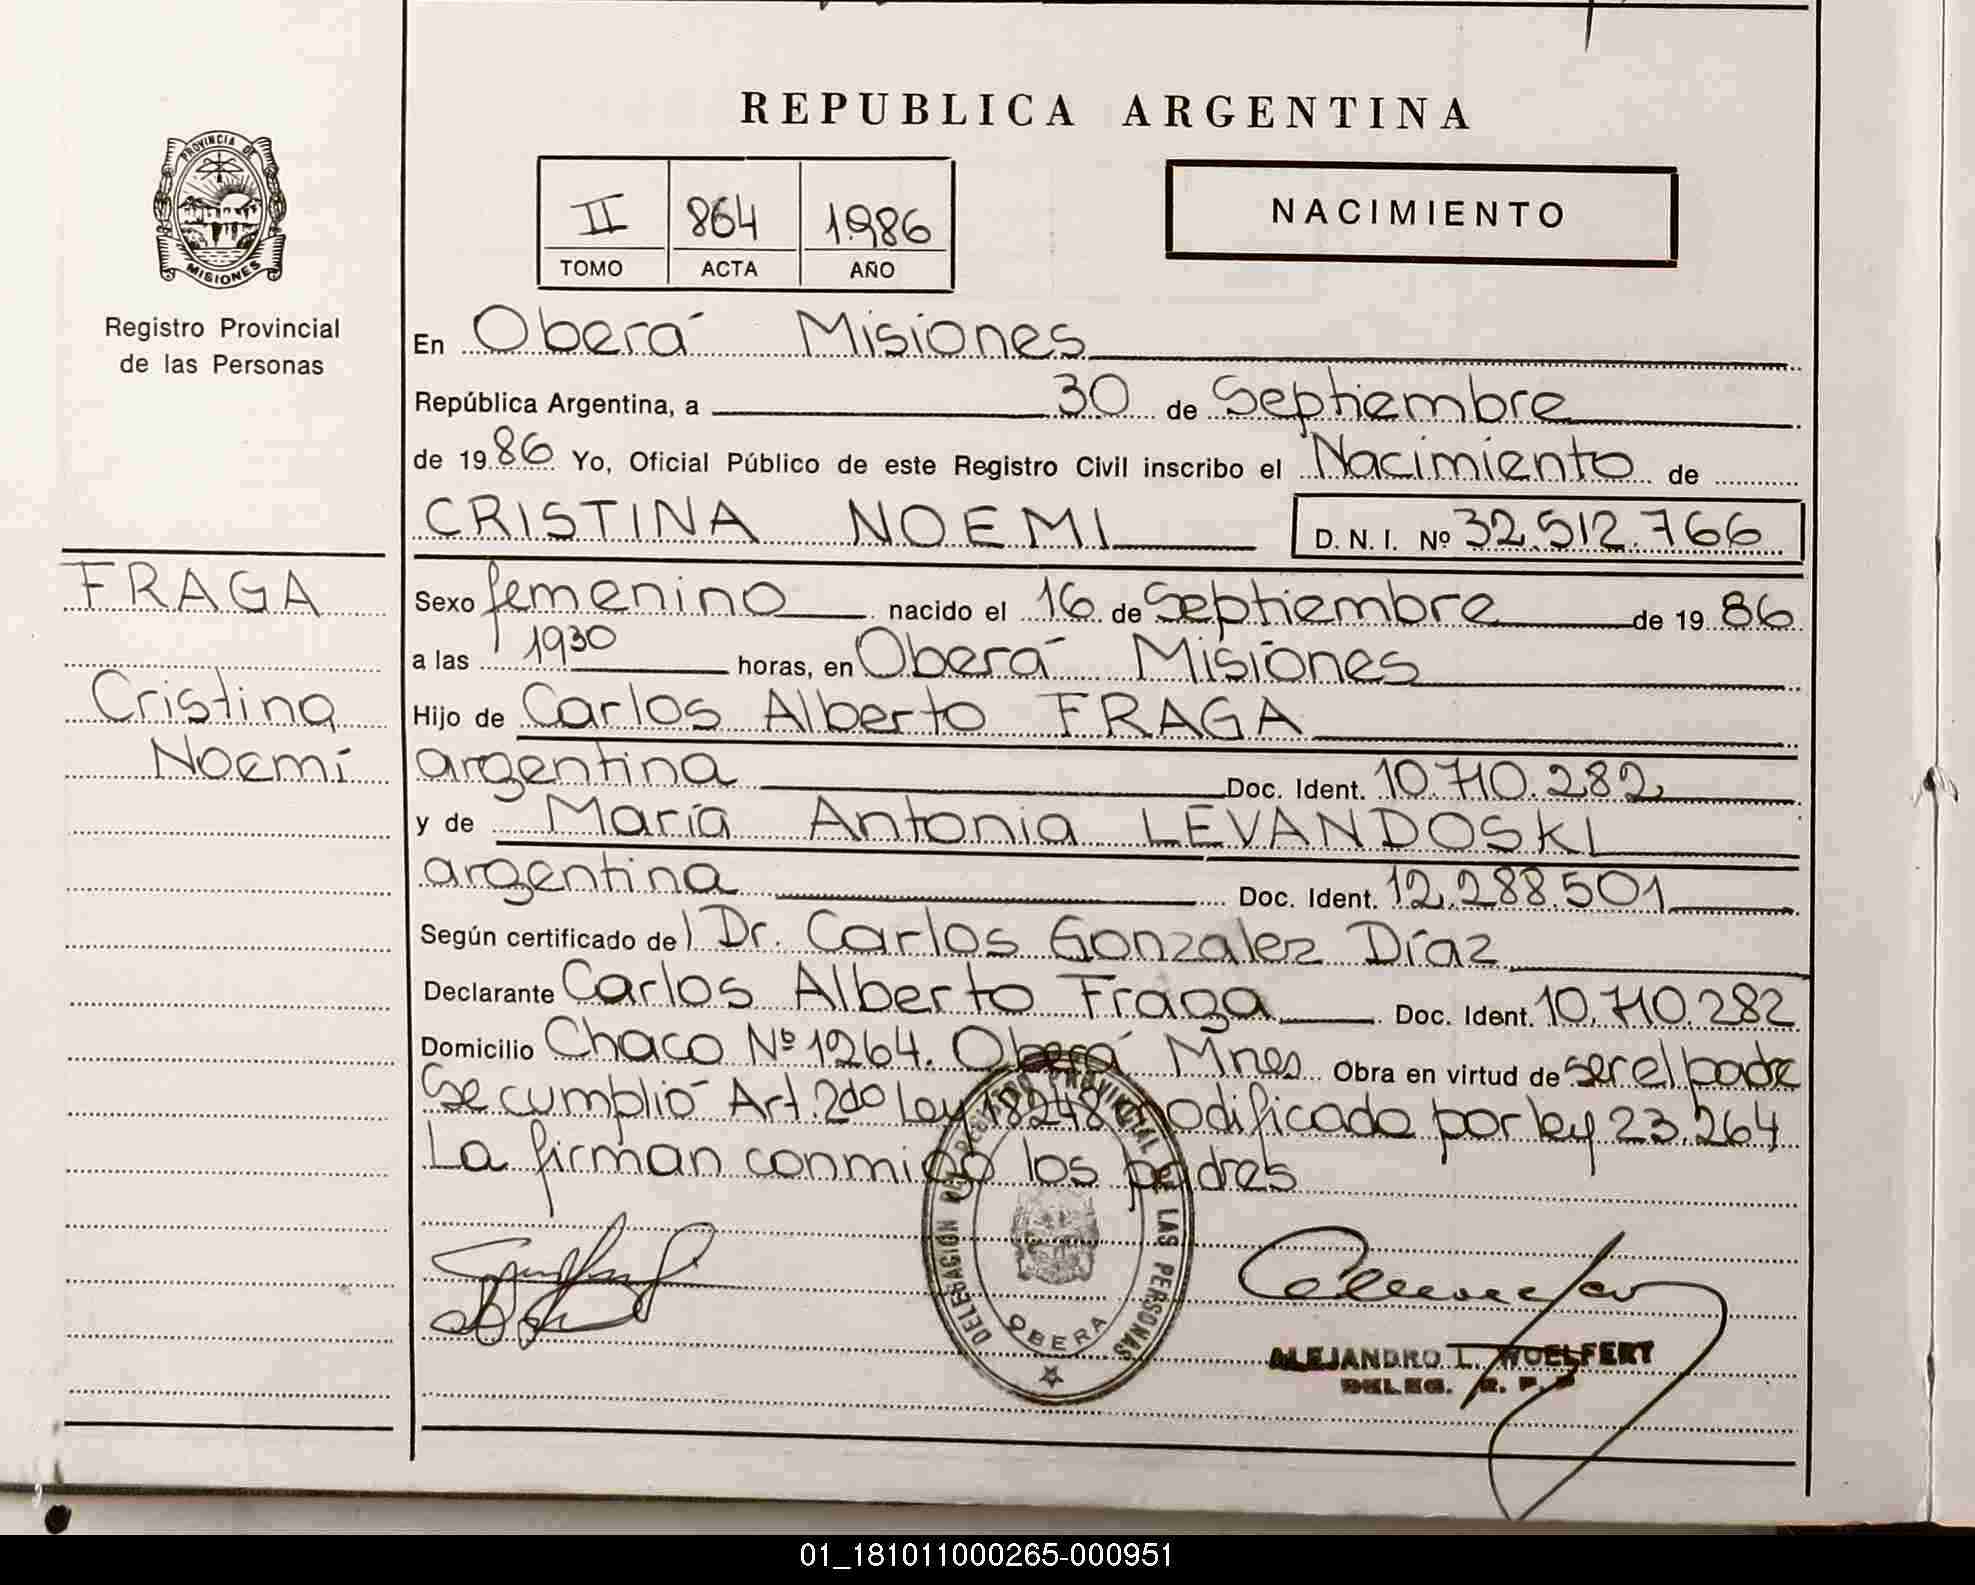 REPUBLICA ARGENTINA
PROVINCIA DE
MISIONES
Registro Provincial
de las Personas
II 864 1986
TOMO ACTA AÑO
NACIMIENTO
En Oberá Misiones
República Argentina, a 30 de Septiembre
de 1986 Yo, Oficial Público de este Registro Civil inscribo el Nacimiento de
CRISTINA NOEMI D. N. I. Nº 32.512.766
FRAGA
Cristina
Noemí
Sexo femenino nacido el 16 de Septiembre de 1986
a las 1930 horas, en Oberá Misiones
Hijo de Carlos Alberto FRAGA
argentina Doc. Ident. 10.710.282
y de María Antonia LEVANDOSKI
argentina Doc. Ident. 12.288.501
Según certificado del Dr. Carlos Gonzalez Díaz
Declarante Carlos Alberto Fraga Doc. Ident. 10.710.282
Domicilio Chaco Nº 1264. Oberá Mnes Obra en virtud de ser el padre
Se cumplió Art. 2do Ley 18248 modificado por ley 23.264
La firman conmigo los padres
DELEGACION DEL REGISTRO PROVINCIAL DE LAS PERSONAS
OBERA
ALEJANDRO L. WOELFERT
DELEG. R. P. P
01_181011000265-000951